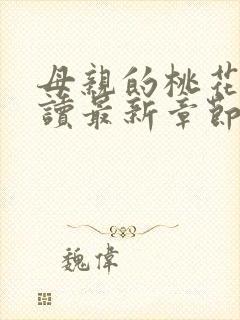 母親的桃花
讀最新章節
魏偉